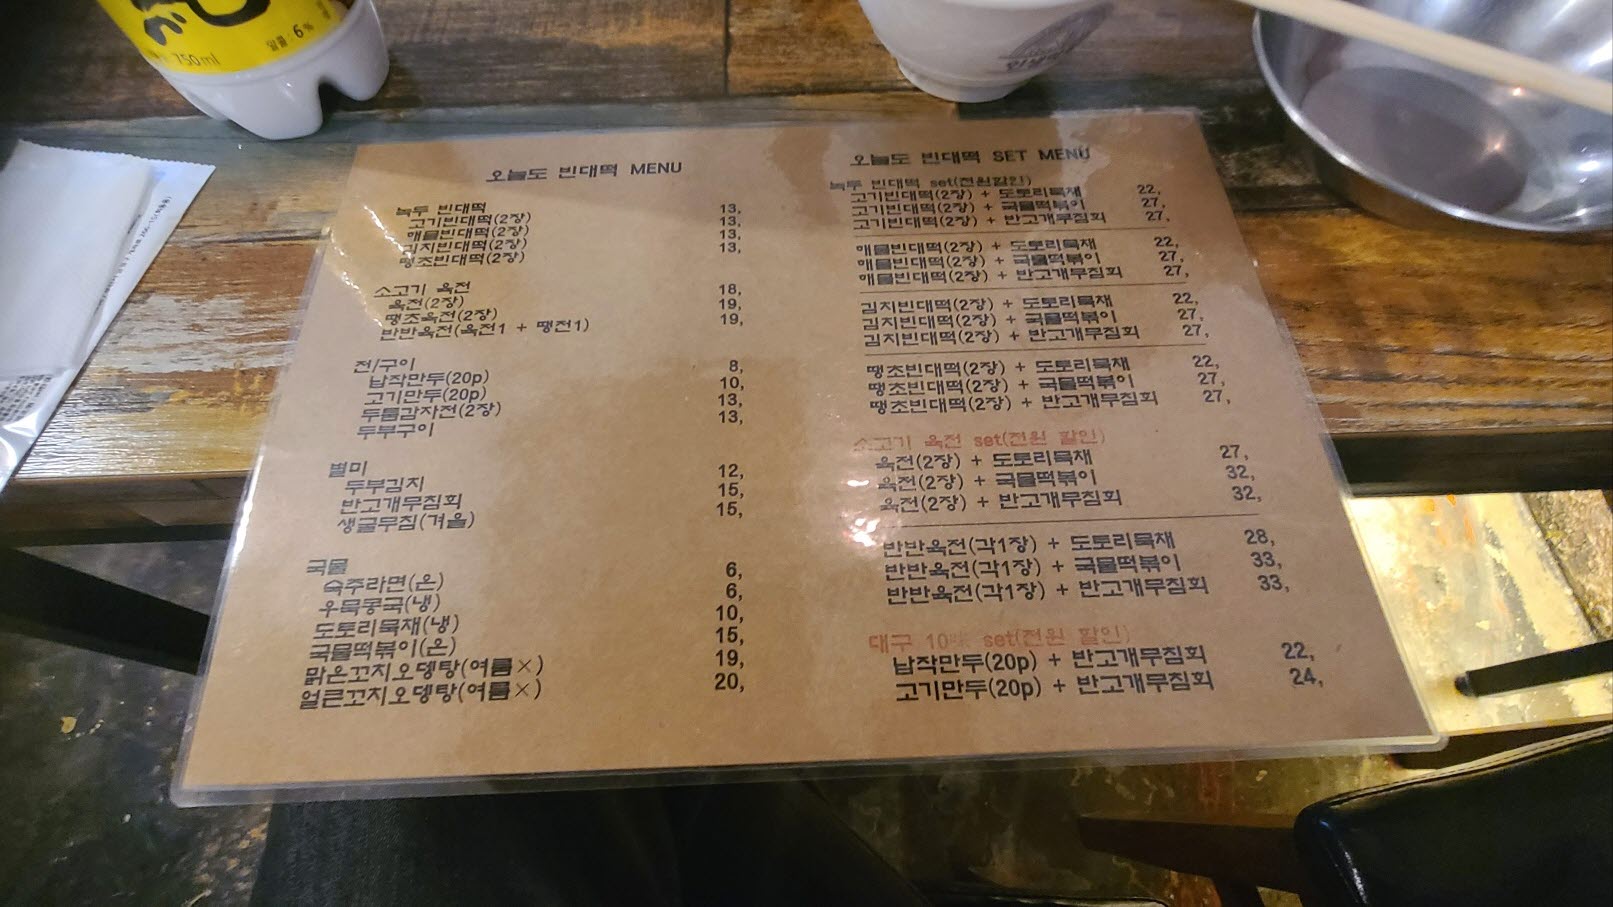 알콜 : 6%
750ml
오늘도 빈대떡 MENU
녹두 빈대떡
고기빈대떡(2장) 13,
해물빈대떡(2장) 13,
김치빈대떡(2장) 13,
땡초빈대떡(2장) 13,
소고기 육전
육전(2장) 18,
땡초육전(2장) 19,
반반육전(육전1 + 땡전1) 19,
전/구이
납작만두(20p) 8,
고기만두(20p) 10,
두툼감자전(2장) 13,
두부구이 13,
별미
두부김치 12,
반고개무침회 15,
생굴무침(겨울) 15,
국물
숙주라면(온) 6,
우묵콩국(냉) 6,
도토리묵채(냉) 10,
국물떡볶이(온) 15,
맑은꼬치오뎅탕(여름×) 19,
얼큰꼬치오뎅탕(여름×) 20,
오늘도 빈대떡 SET MENU
녹두 빈대떡 set(전원할인)
고기빈대떡(2장) + 도토리묵채 22,
고기빈대떡(2장) + 국물떡볶이 27,
고기빈대떡(2장) + 반고개무침회 27,
해물빈대떡(2장) + 도토리묵채 22,
해물빈대떡(2장) + 국물떡볶이 27,
해물빈대떡(2장) + 반고개무침회 27,
김치빈대떡(2장) + 도토리묵채 22,
김치빈대떡(2장) + 국물떡볶이 27,
김치빈대떡(2장) + 반고개무침회 27,
땡초빈대떡(2장) + 도토리묵채 22,
땡초빈대떡(2장) + 국물떡볶이 27,
땡초빈대떡(2장) + 반고개무침회 27,
소고기 육전 set(전원 할인)
육전(2장) + 도토리묵채 27,
육전(2장) + 국물떡볶이 32,
육전(2장) + 반고개무침회 32,
반반육전(각1장) + 도토리묵채 28,
반반육전(각1장) + 국물떡볶이 33,
반반육전(각1장) + 반고개무침회 33,
대구 10味 set(전원 할인)
납작만두(20p) + 반고개무침회 22,
고기만두(20p) + 반고개무침회 24,